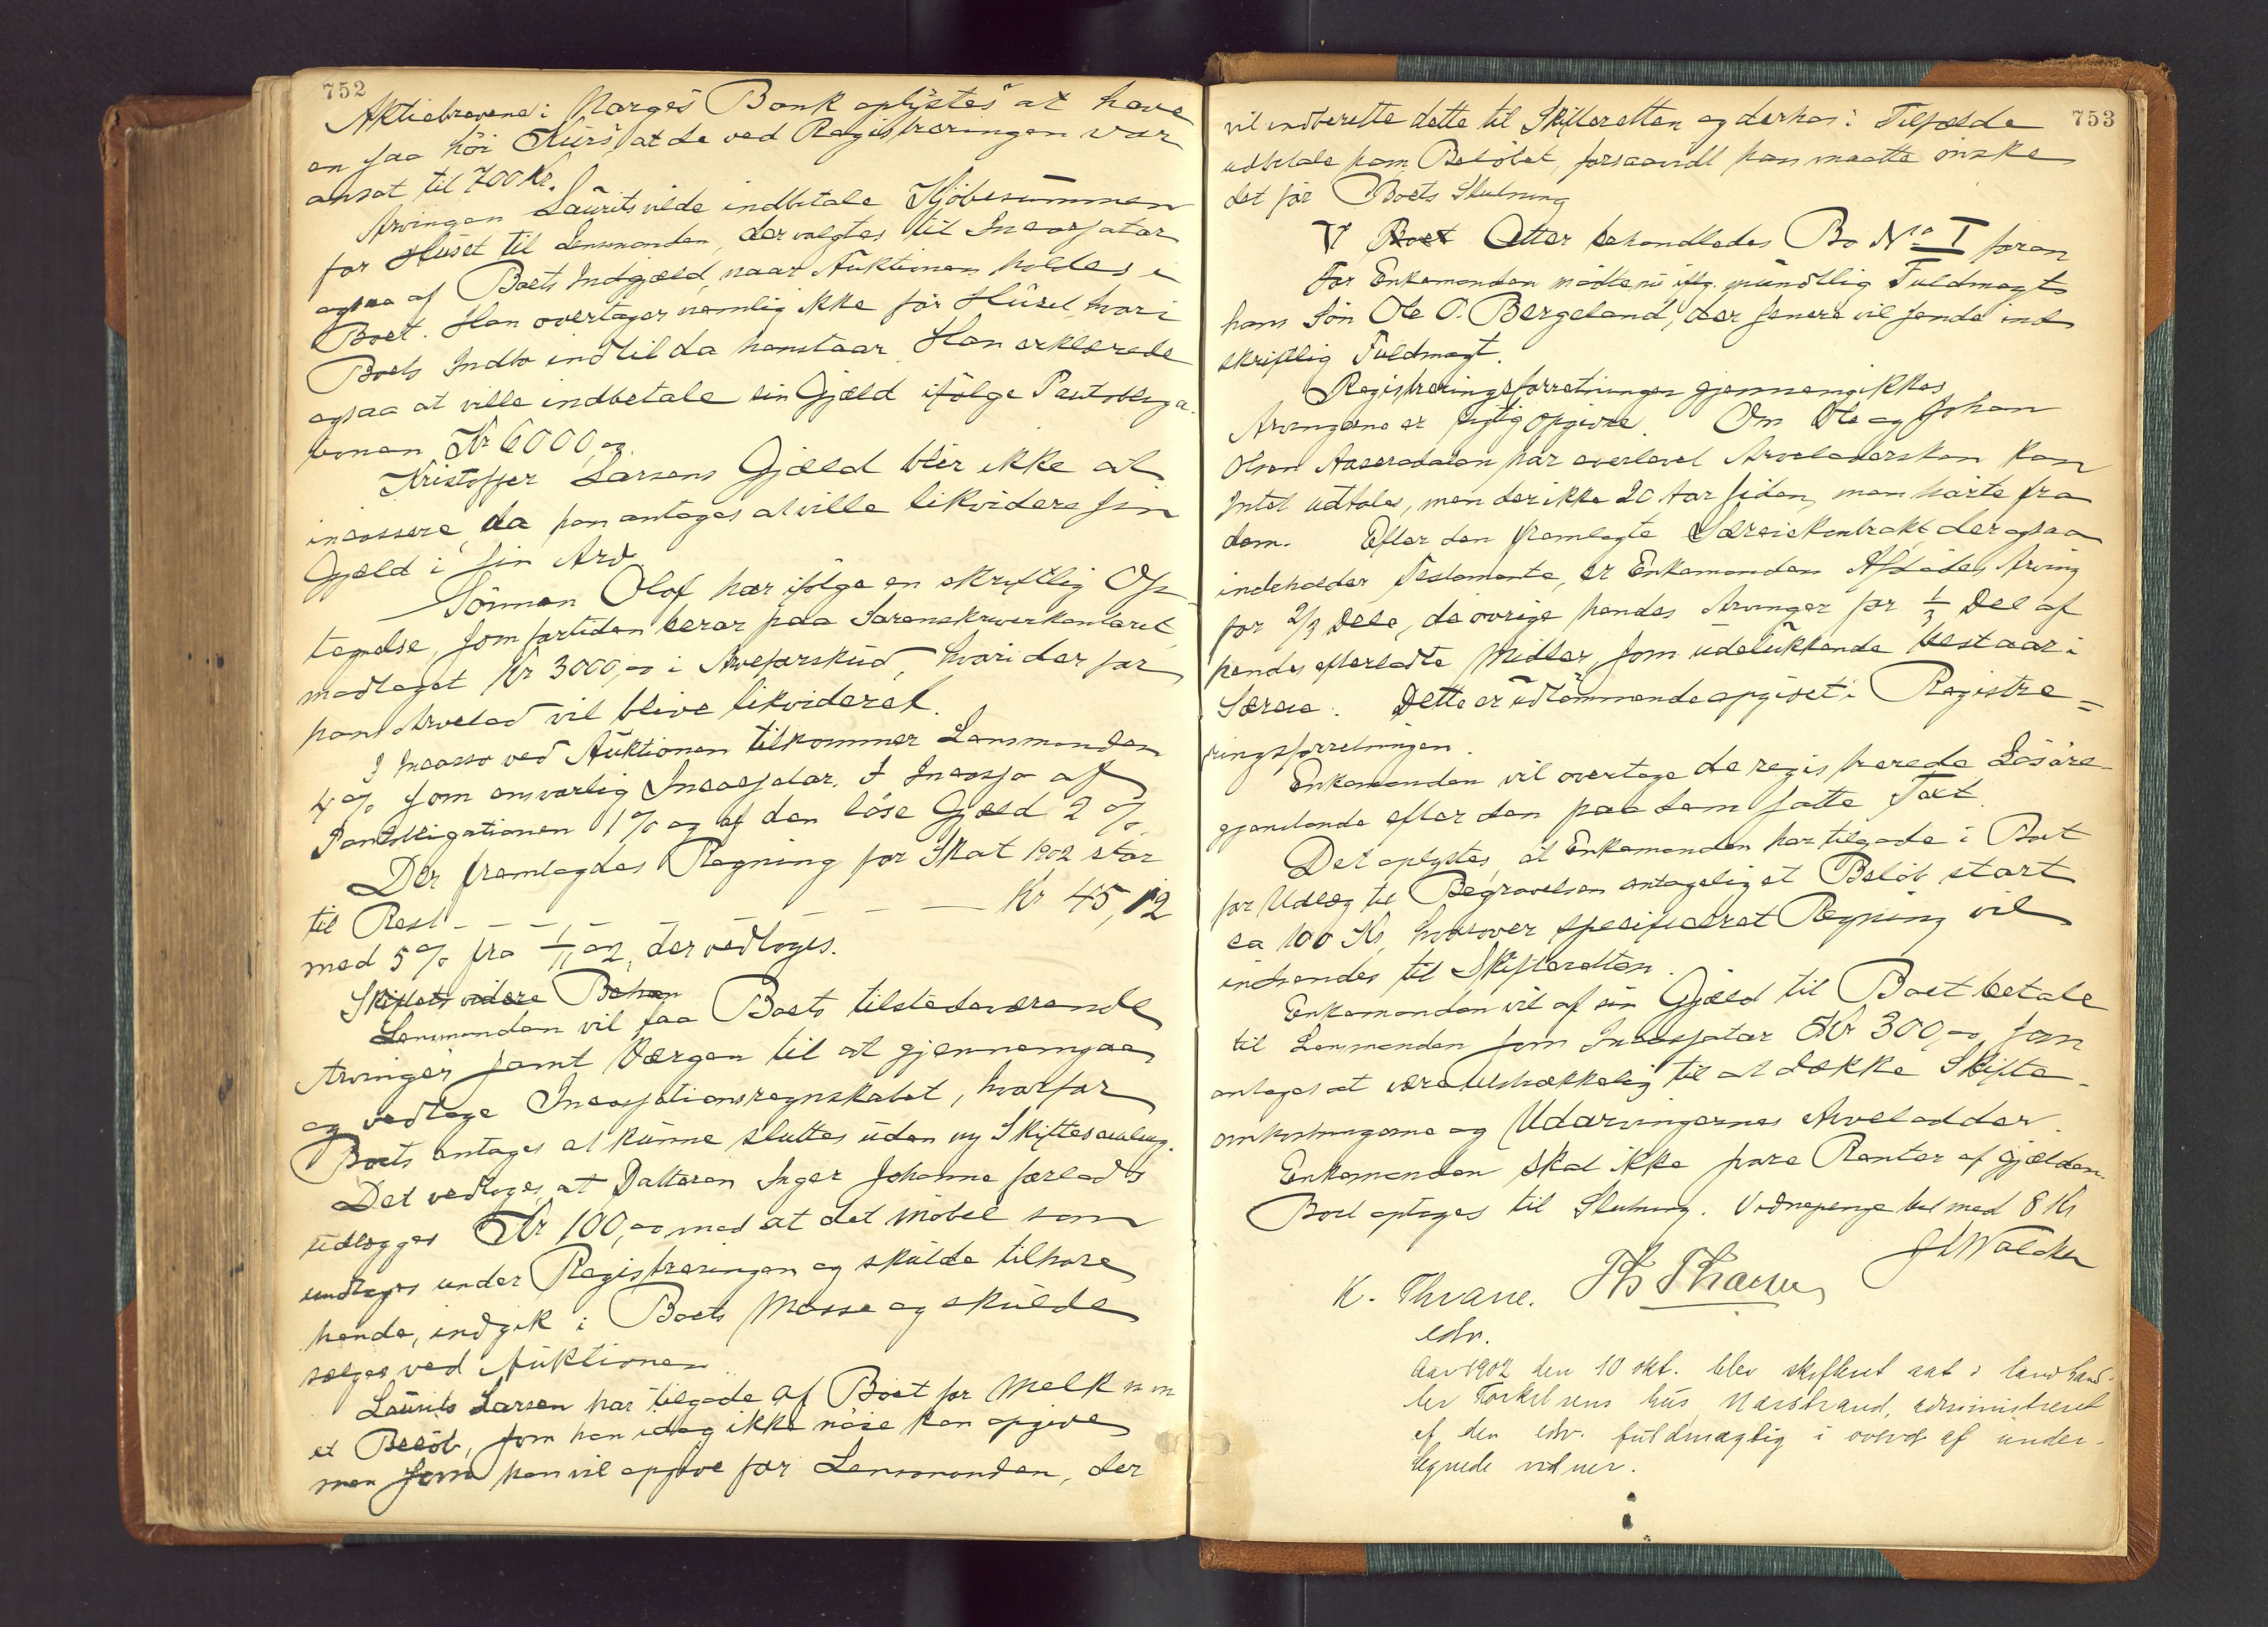 752
Aktiebrevene i Norges Bank oplystes at have
en saa høi Kurs, at de ved Registreringen var
ansat til 700 Kr.
Arvingen Laurits vilde indbetale Kjøbesummen
for Huset til Lensmanden, der valgtes til Incassator
ogsaa af Boets Indgjæld, naar Auktionen holdes i
Boet. Han overtager nemlig ikke før Huset, hvori
Boets Indbo indtil da henstaar. Han erklærede
ogsaa at ville indbetale sin Gjæld ifølge Pantobliga-
tionen Kr 6000,00.
Kristoffer Larsens Gjæld blir ikke at
incassere, da han antages at ville likvidere sin
Gjæld i sin Arv.
Sønnen Olof har ifølge en skriftlig Op-
tegnelse, som fortiden beror paa Sorenskriverkontoret
modtaget Kr 3000,00 i Arveforskud, hvori der for
hans Arvelod vil blive likvideret.
I Incasso ved Auktionen tilkommer Lensmanden
4% som ansvarlig Incassator. I Incasso af
Pantobligationen 1% og af den løse Gjæld 2%.
Der fremlagdes Regning for Skat 1902 stor
til Rest - - - - - - - Kr 45,12
med 5% fra 1/11 02, der vedtoges.
Skiftets videre Behan
Lensmanden vil faa Boets tilstedeværende
Arvinger samt Værgen til at gjennemgaa
og vedtage Incassationsregnskabet, hvorfor
Boets antages at kunne sluttes uden ny Skiftesamling.
Det vedtoges, at Datteren Inger Johanne forlods
udlægges Kr 100,00 mod at det Møbel som
undtoges under Registreringen og skulde tilhøre
hende, indgik i Boets Masse og skulde
sælges ved Auktionen.
Laurits Larsen har tilgode af Boet for Melk m m
et Beløb, som han idag ikke nøie kan opgive
men som han vil opgive for Lensmanden, der
753
vil indberette dette til Skifteretten og derhos i Tilfælde
udbetale ham Beløbet, forsaavidt han maatte ønske
det før Boets Slutning
V Boet Atter behandledes Bo No I foran
For Enkemanden mødte nu iflg. mundtlig Fuldmagt
hans Søn Ole O. Bergeland, der senere vil sende ind
skriftlig Fuldmagt.
Registreringsforretningen gjennemgikkes
Arvingerne er rigtig opgivne. Om Ole og Johan
Olsen Aaserodalen har overlevet Arveladersken kan
Intet udtales, men der ikke 20 Aar siden man hørte fra
dem. Efter den fremlagte Særeiekontrakt der ogsaa
indeholder Testamente, er Enkemanden Afdødes Arving
for 2/3 Dele, de øvrige hendes Arvinger for 1/3 Del af
hendes efterladte Midler, som udelukkende bestaar i
Særeie. Dette er udtømmende opgivet i Registre=
ringsforretningen.
Enkemanden vil overtage de registrerede Løsøre-
gjenstande efter den paa dem satte Taxt.
Det oplystes, at Enkemanden har tilgode i Boet
for Udlæg til Begravelsen antagelig et Beløb stort
ca 100 Kr, hvorover specificeret Regning vil
indsendes til Skifteretten.
Enkemanden vil af sin Gjæld til Boet betale
til Lensmanden som Incassator Kr 300,00, som
antages at være tilstrækkelig til at dække Skifte-
omkostningerne og Udarvingernes Arvelodder.
Enkemanden skal ikke svare Renter af Gjælden.
Boet optages til Slutning. Vidnepenge bet med 8 Kr
K. Thrane. Th Thorsen
edv.
Aar 1902 den 10 okt. blev skifteret sat i landhand-
ler Torkelsens hus, administreret
af den edv. fuldmægtig i overvær af under-
tegnede vidner.